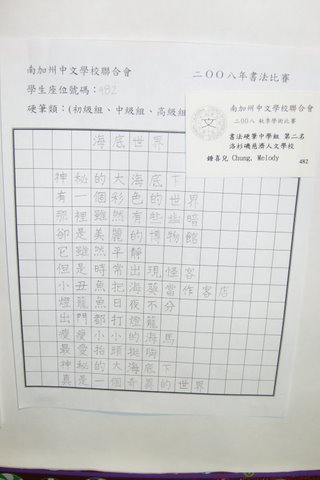 南加州中文學校聯合會
二〇〇八年書法比賽
學生座位號碼：482
硬筆類：(初級組、中級組、高級組
南加州中文學校聯合會
二〇〇八 秋季學術比賽
書法硬筆中學組 第二名
洛杉磯慈濟人文學校
鍾喜兒 Chung, Melody
482
海底世界
神秘的大海底下
有一個彩色的世界
那裡雖然有些幽暗
卻是美麗的博物館
它雖然平靜
但是時常出現怪客
小丑魚把海葵當作客店
燈籠魚日夜不分
出門都打燈籠
瘦瘦小小的海馬
最愛抬頭挺胸
神秘的大海底下
真是一個奇異的世界